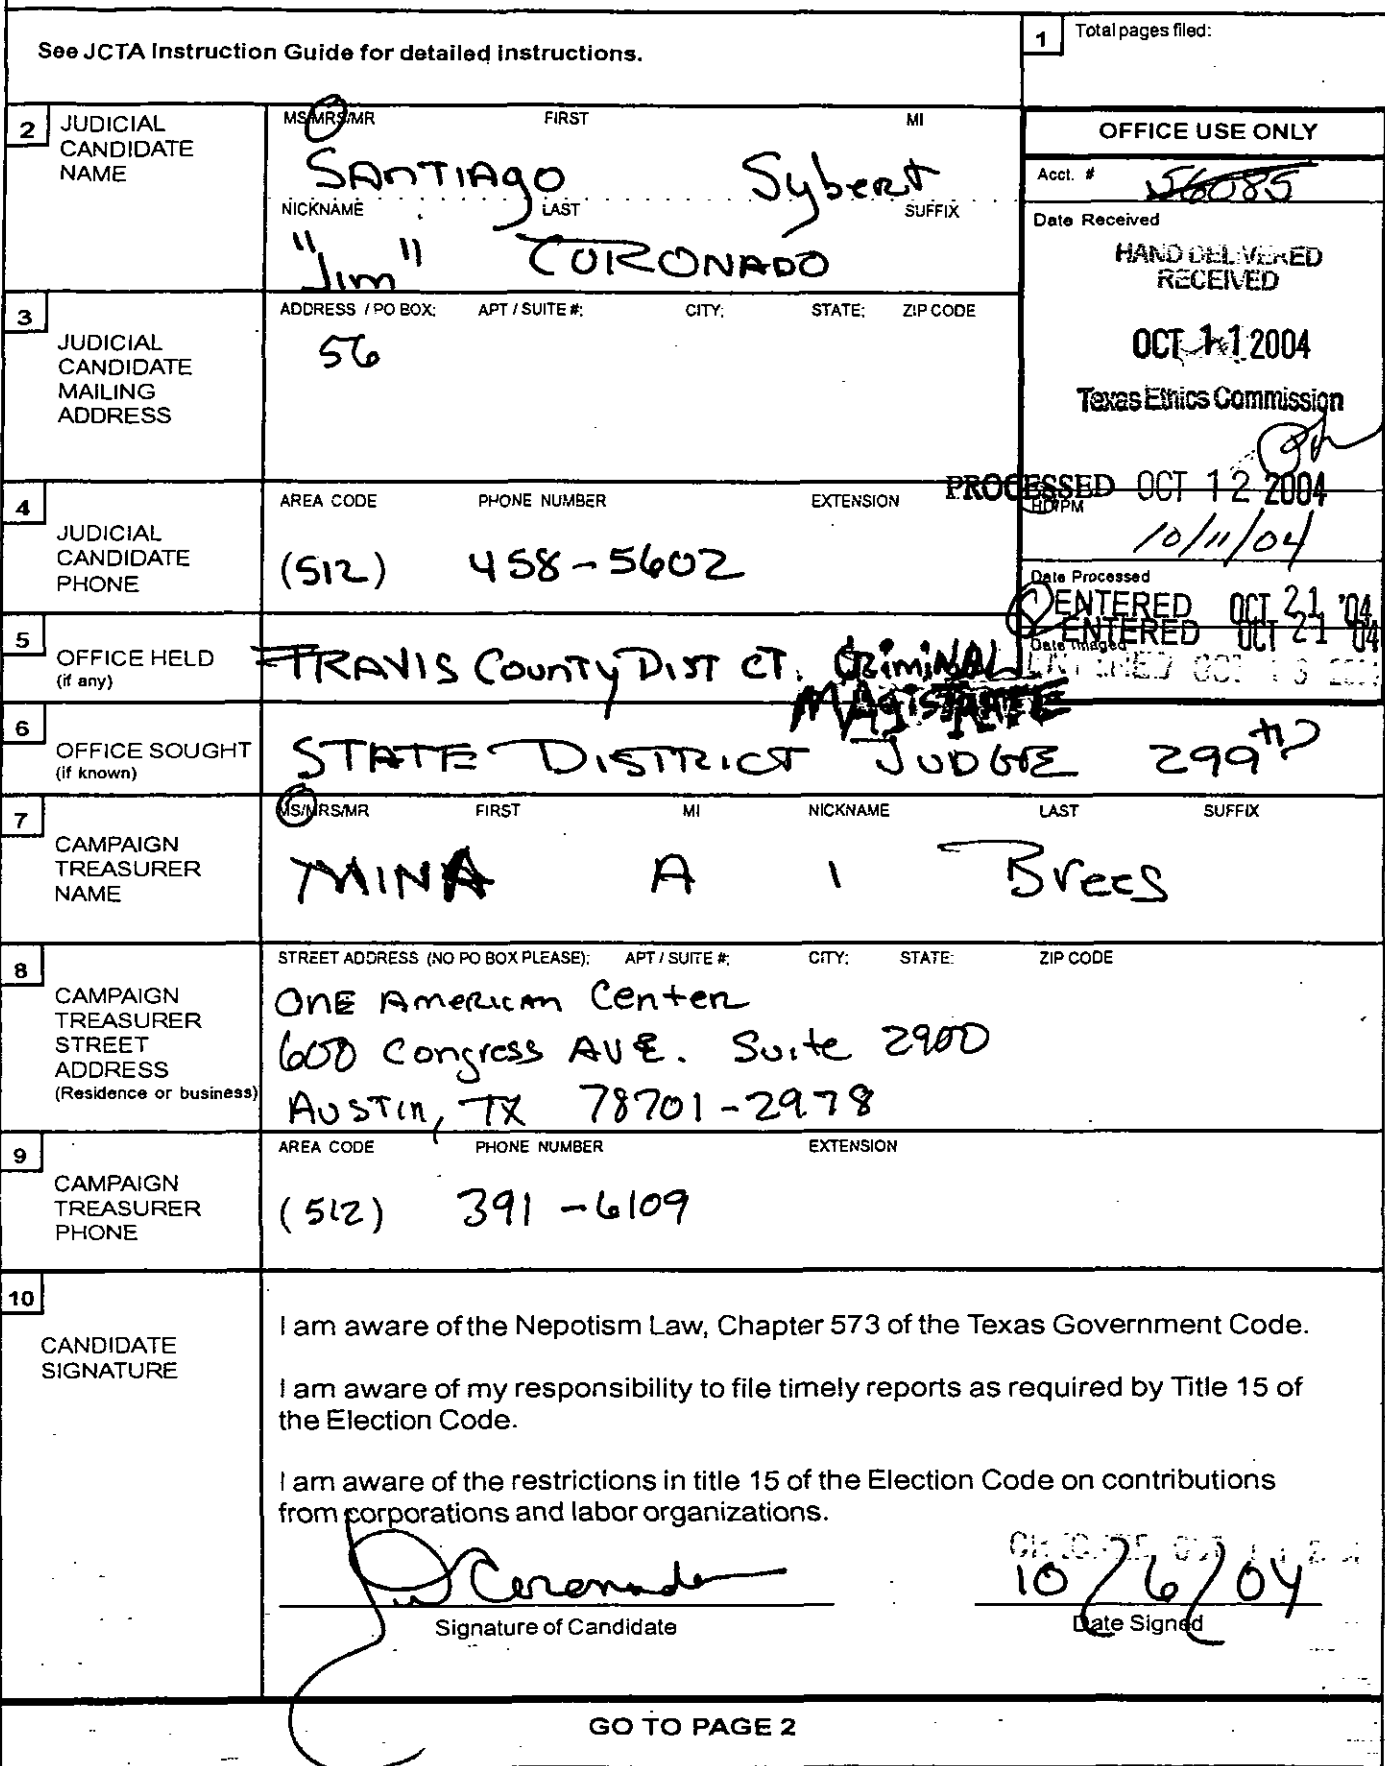 See JCTA Instruction Guide for detailed instructions.
1 Total pages filed:
2 JUDICIAL CANDIDATE NAME
MS/MRS/MR FIRST MI
SANTIAGO Sybert
NICKNAME LAST SUFFIX
"Jim" CORONADO
OFFICE USE ONLY
Acct. # 56085
Date Received
HAND DELIVERED
RECEIVED
OCT 11 2004
Texas Ethics Commission
3 JUDICIAL CANDIDATE MAILING ADDRESS
ADDRESS / PO BOX; APT / SUITE #; CITY; STATE; ZIP CODE
56
PROCESSED OCT 12 2004
HD/PM
10/11/04
4 JUDICIAL CANDIDATE PHONE
AREA CODE PHONE NUMBER EXTENSION
(512) 458-5602
Date Processed
ENTERED OCT 21 '04
ENTERED OCT 21 04
Date Imaged
5 OFFICE HELD (if any)
TRAVIS COUNTY DIST CT. CRIMINAL
MAGISTRATE
6 OFFICE SOUGHT (if known)
STATE DISTRICT JUDGE 299th
7 CAMPAIGN TREASURER NAME
MS/MRS/MR FIRST MI NICKNAME LAST SUFFIX
MINA A Brees
8 CAMPAIGN TREASURER STREET ADDRESS (Residence or business)
STREET ADDRESS (NO PO BOX PLEASE); APT / SUITE #; CITY; STATE; ZIP CODE
ONE American Center
600 Congress AVE. Suite 2900
AUSTIN, TX 78701-2978
9 CAMPAIGN TREASURER PHONE
AREA CODE PHONE NUMBER EXTENSION
(512) 391-6109
10 CANDIDATE SIGNATURE
I am aware of the Nepotism Law, Chapter 573 of the Texas Government Code.
I am aware of my responsibility to file timely reports as required by Title 15 of
the Election Code.
I am aware of the restrictions in title 15 of the Election Code on contributions
from corporations and labor organizations.
Jim Coronado
10/6/04
Signature of Candidate
Date Signed
GO TO PAGE 2